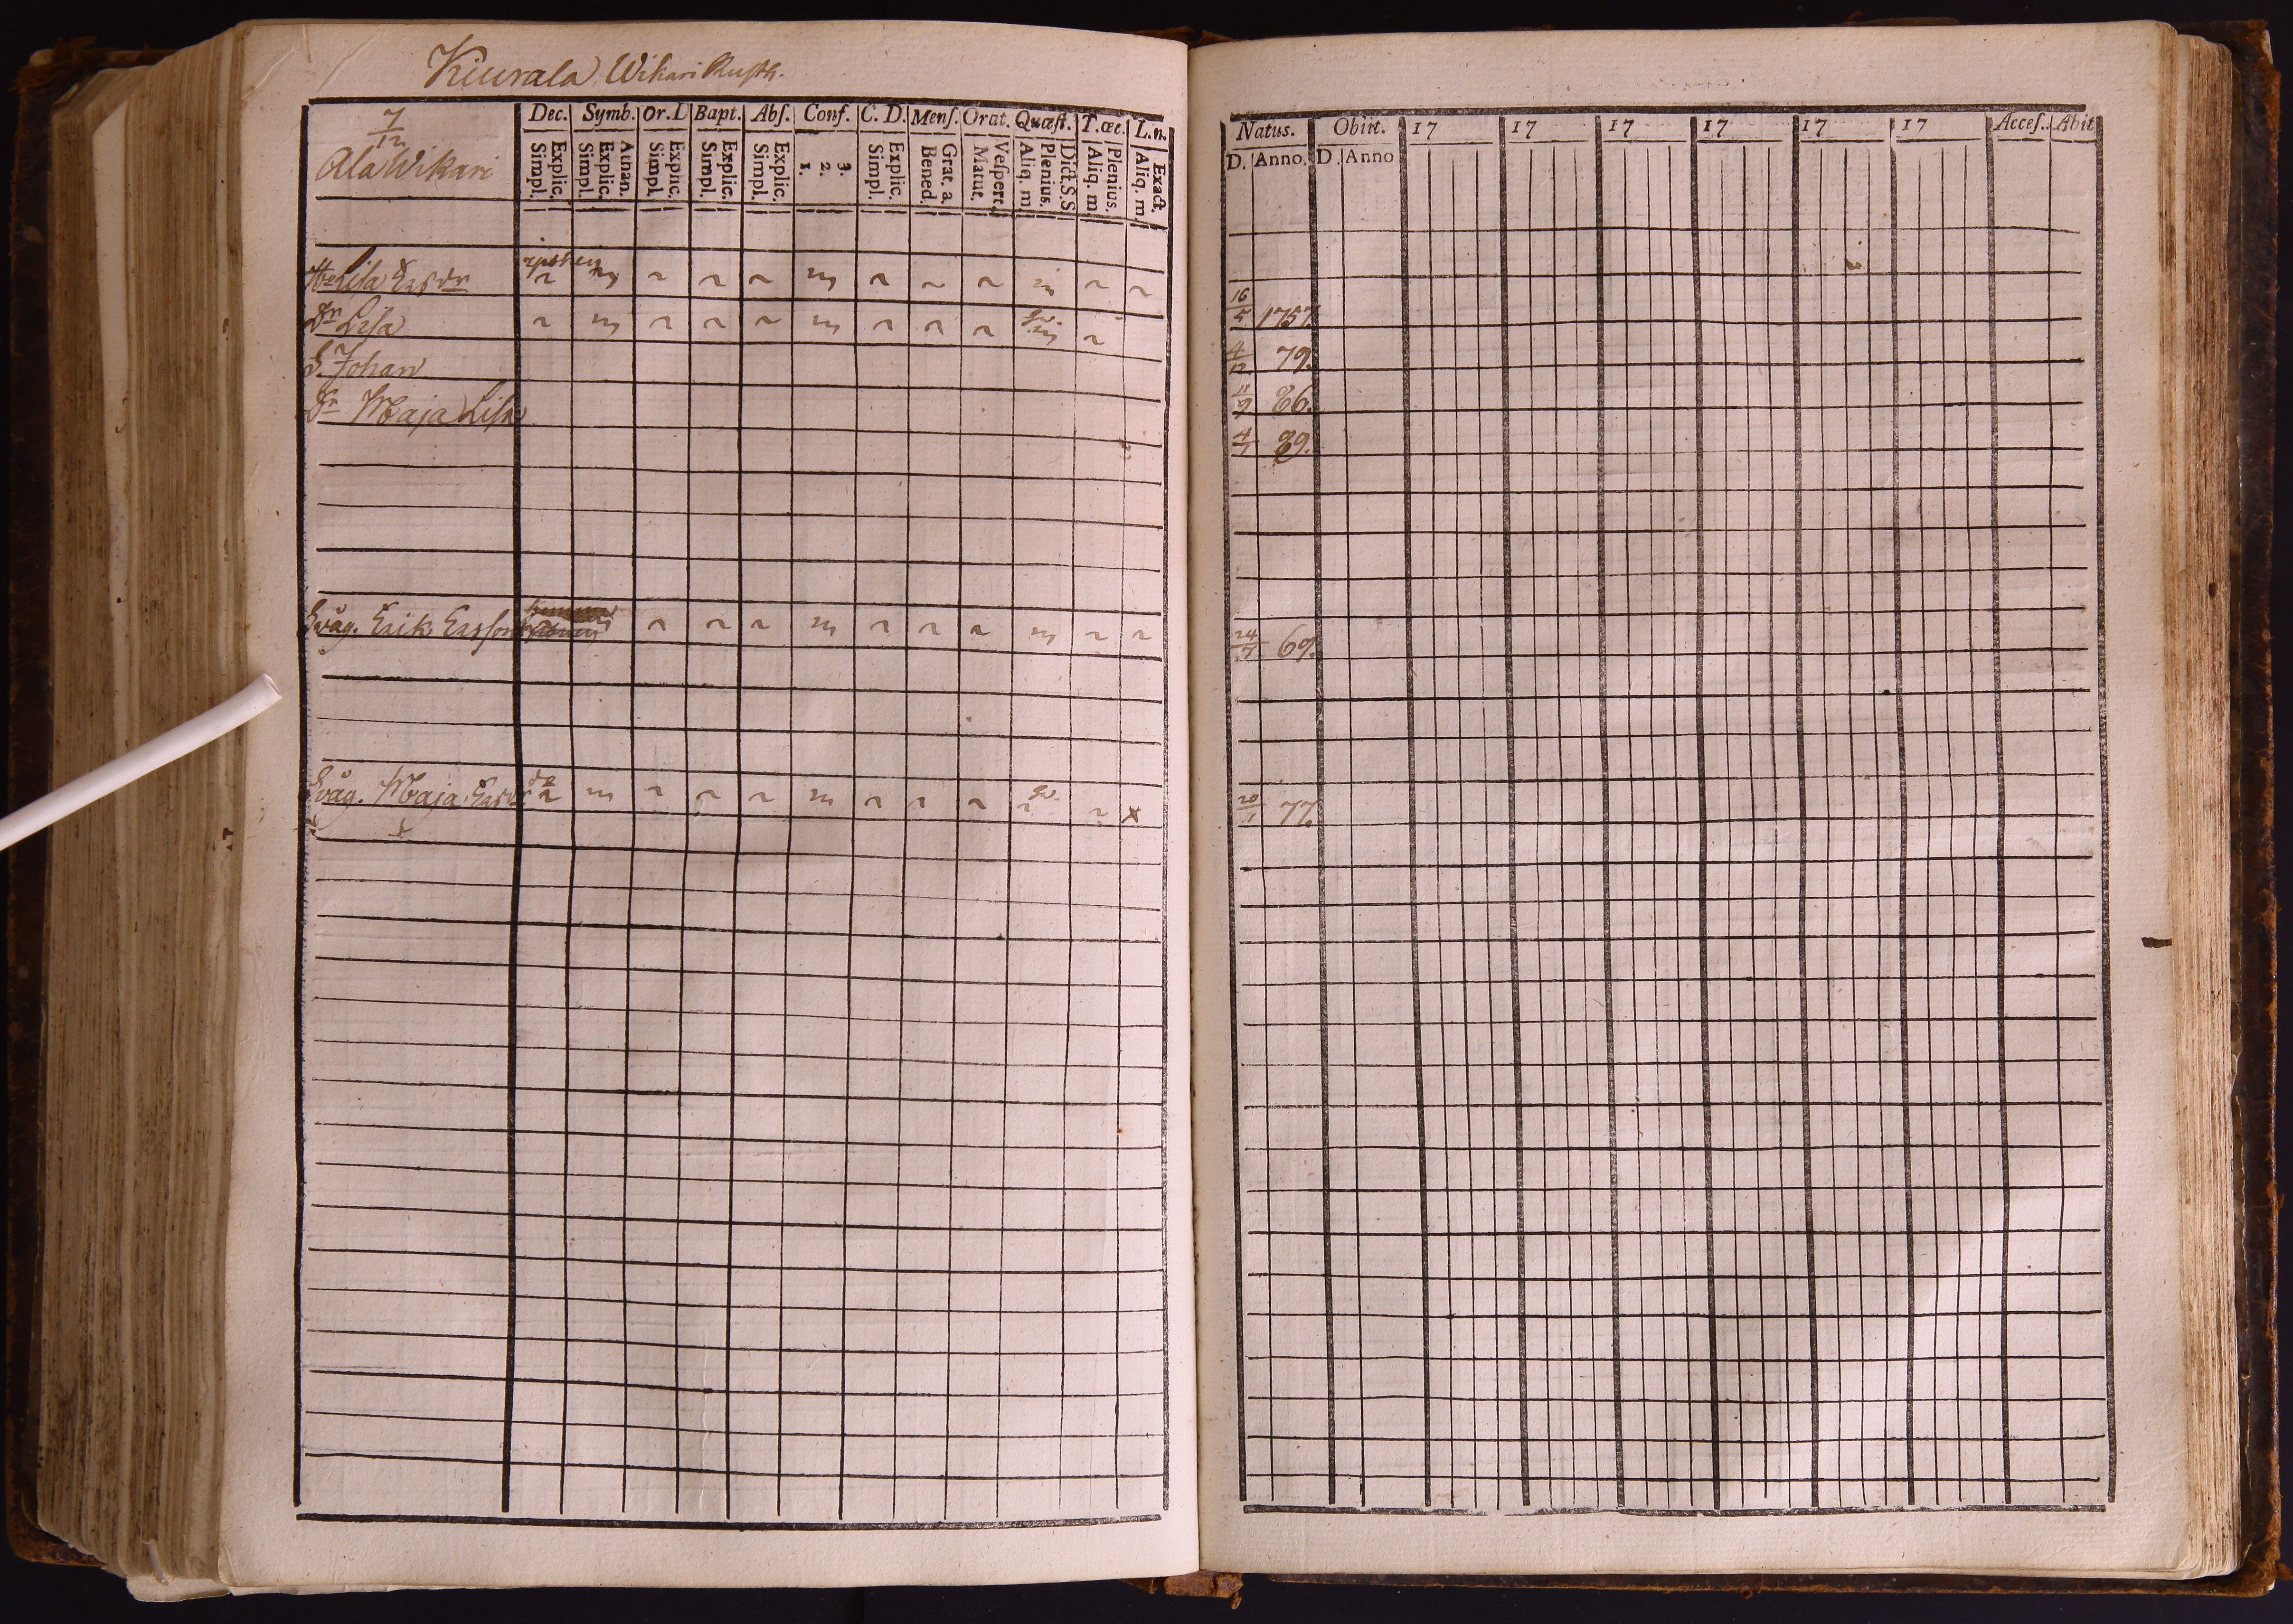 Kiurala Wikari Rusth.
7/12
Ala Wikari
Dec. Symb. Or. D Bapt. Abſ. Conf. C. D. Menſ. Orat. Quæſt. T. œc. L. n.
Simpl. Explic. Simpl. Explic. Athan. Simpl. Explic. Simpl. Explic. Simpl. Explic. 1. 2. 3. Simpl. Explic. Bened. Grat. a. Matut. Veſpert. Aliq. m Plenius. Dict. S. S Aliq. m Plenius. Aliq. m Exact.
Natus. Obiit. 17 17 17 17 17 17 Acceſ. Abiit
D. Anno. D. Anno
Lisa Ersdr 16/5 1757.
Dr Lisa 4/12 79.
S. Johan 11/9 86.
Dr Maja Lisa 4/7 89.
Swåg. Erik Ersson 69.
Swåg. Maja Ersdr 20/1 77.